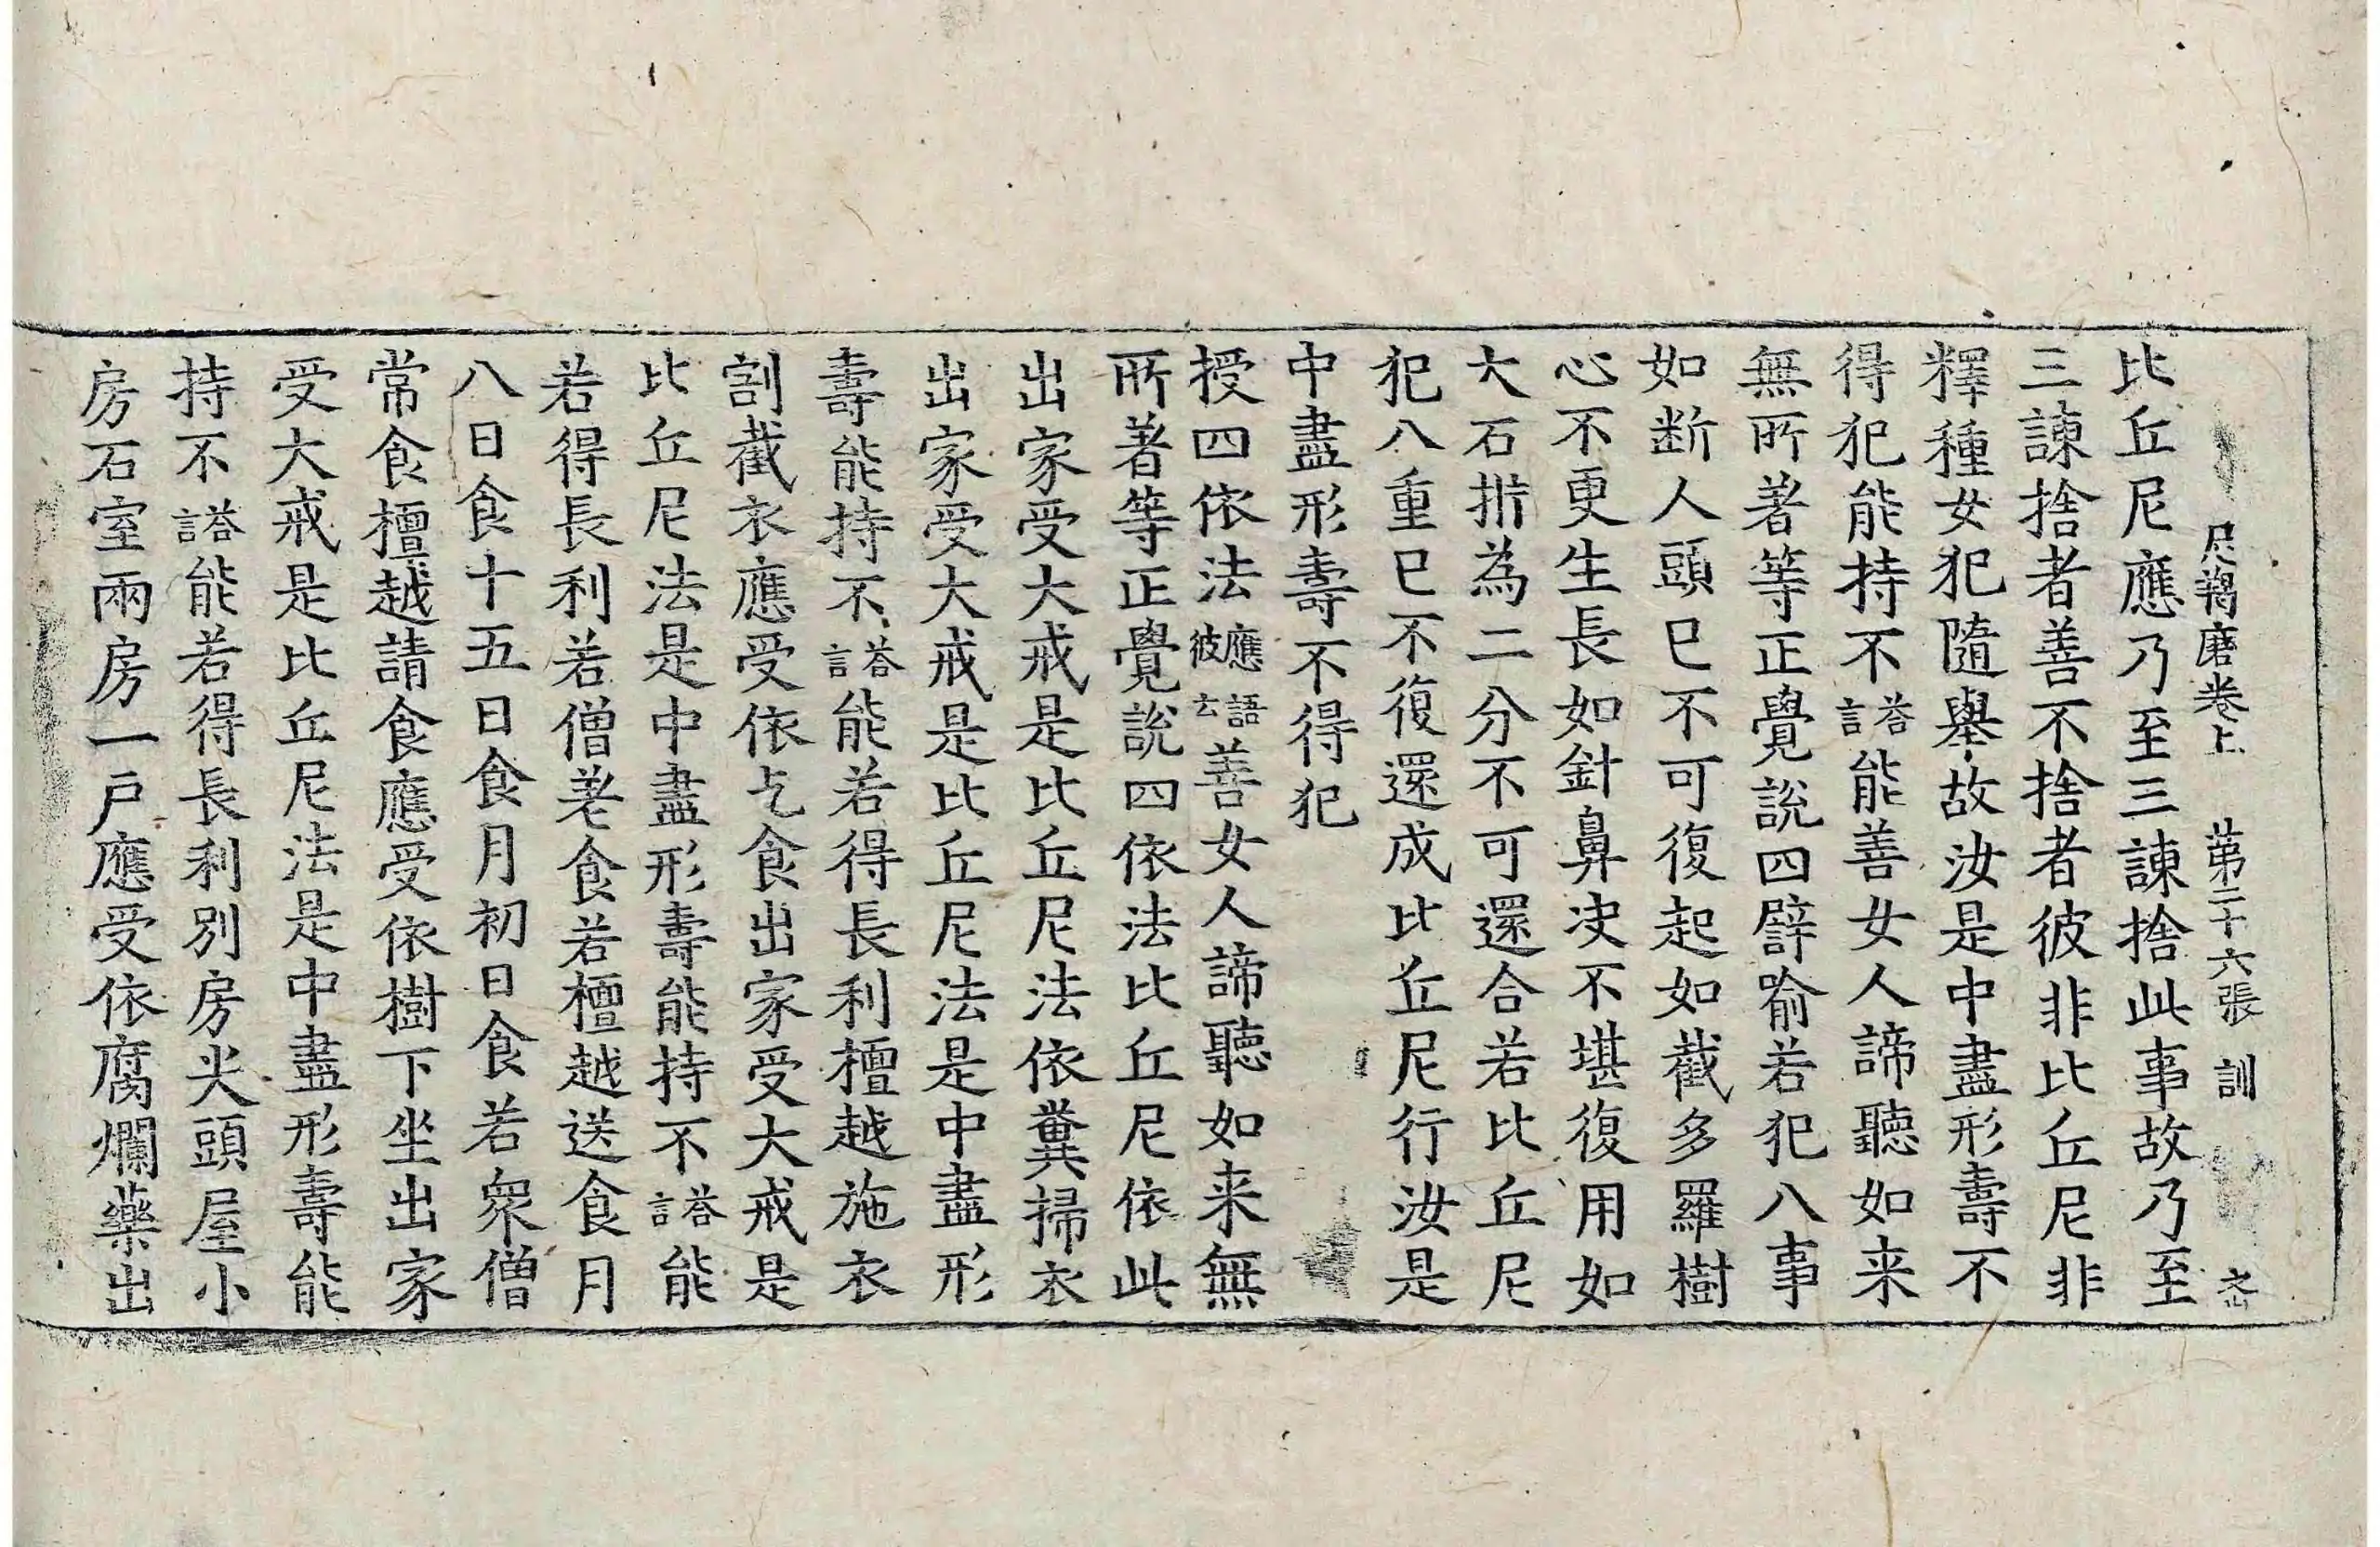 尼羯磨卷上 第二十六張 訓
比丘尼應乃至三諫捨此事故乃至
三諫捨者善不捨者彼非比丘尼非
釋種女犯隨舉故汝是中盡形壽不
得犯能持不答言能善女人諦聽如来
無所著等正覺說四譬喻若犯八事
如斷人頭已不可復起如截多羅樹
心不更生長如針鼻決不堪復用如
大石㭊為二分不可還合若比丘尼
犯八重已不復還成比丘尼行汝是
中盡形壽不得犯
授四依法應語彼云善女人諦聽如来無
所著等正覺說四依法比丘尼依此
出家受大戒是比丘尼法依糞掃衣
出家受大戒是比丘尼法是中盡形
壽能持不答言能若得長利檀越施衣
割截衣應受依乞食出家受大戒是
比丘尼法是中盡形壽能持不答言能
若得長利若僧差食若檀越送食月
八日食十五日食月初日食若眾僧
常食檀越請食應受依樹下坐出家
受大戒是比丘尼法是中盡形壽能
持不答言能若得長利別房尖頭屋小
房石室兩房一戶應受依腐爛藥出